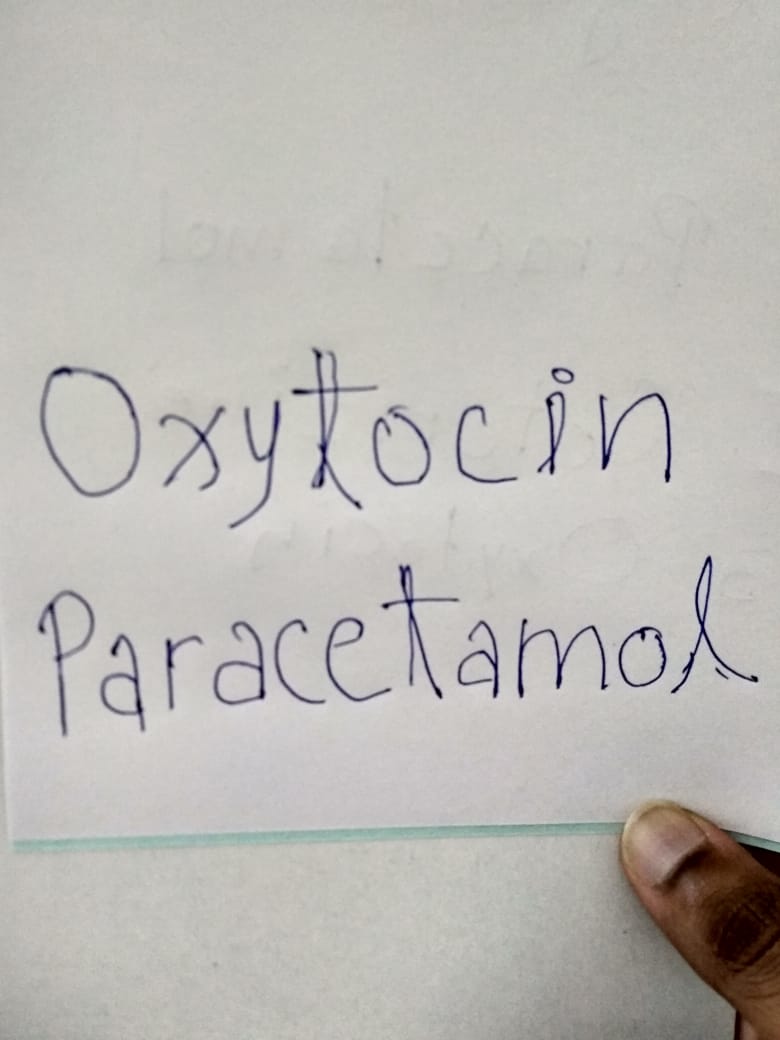 Oxytocin
Paracetamol